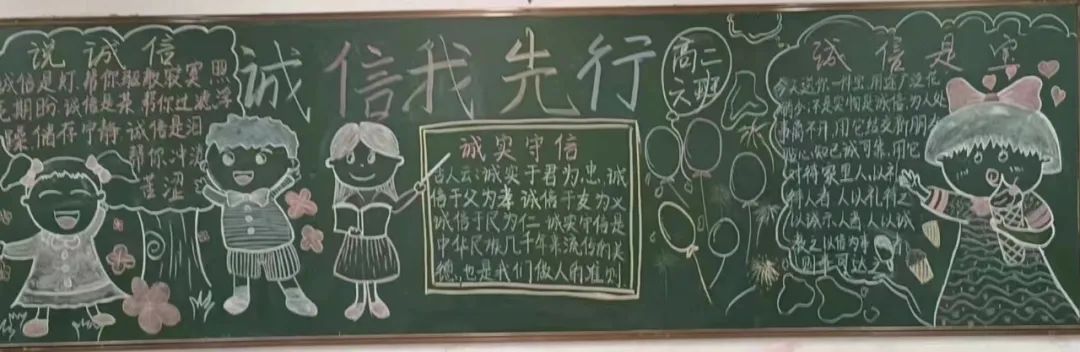 说诚信
诚信是灯,帮你驱散寂寞,照
亮期盼,诚信是茶,帮你过滤浮
躁,储存宁静,诚信是泪
帮你冲淡
苦涩
诚信我先行
高二
六班
诚实守信
古人云:诚实于君为忠,诚
信于父为孝,诚信于友为义
诚信于民为仁,诚实守信是
中华民族几千年来流传的美
德,也是我们做人的准则
诚信是宝
今天送你一件宝,用途广泛花
销少;不是实物是诚信,为人处
事离不开,用它结交新朋友
心知已诚可靠,用它
对待家里人,以礼
待人者,人以礼待之
以诚示人者,人以诚